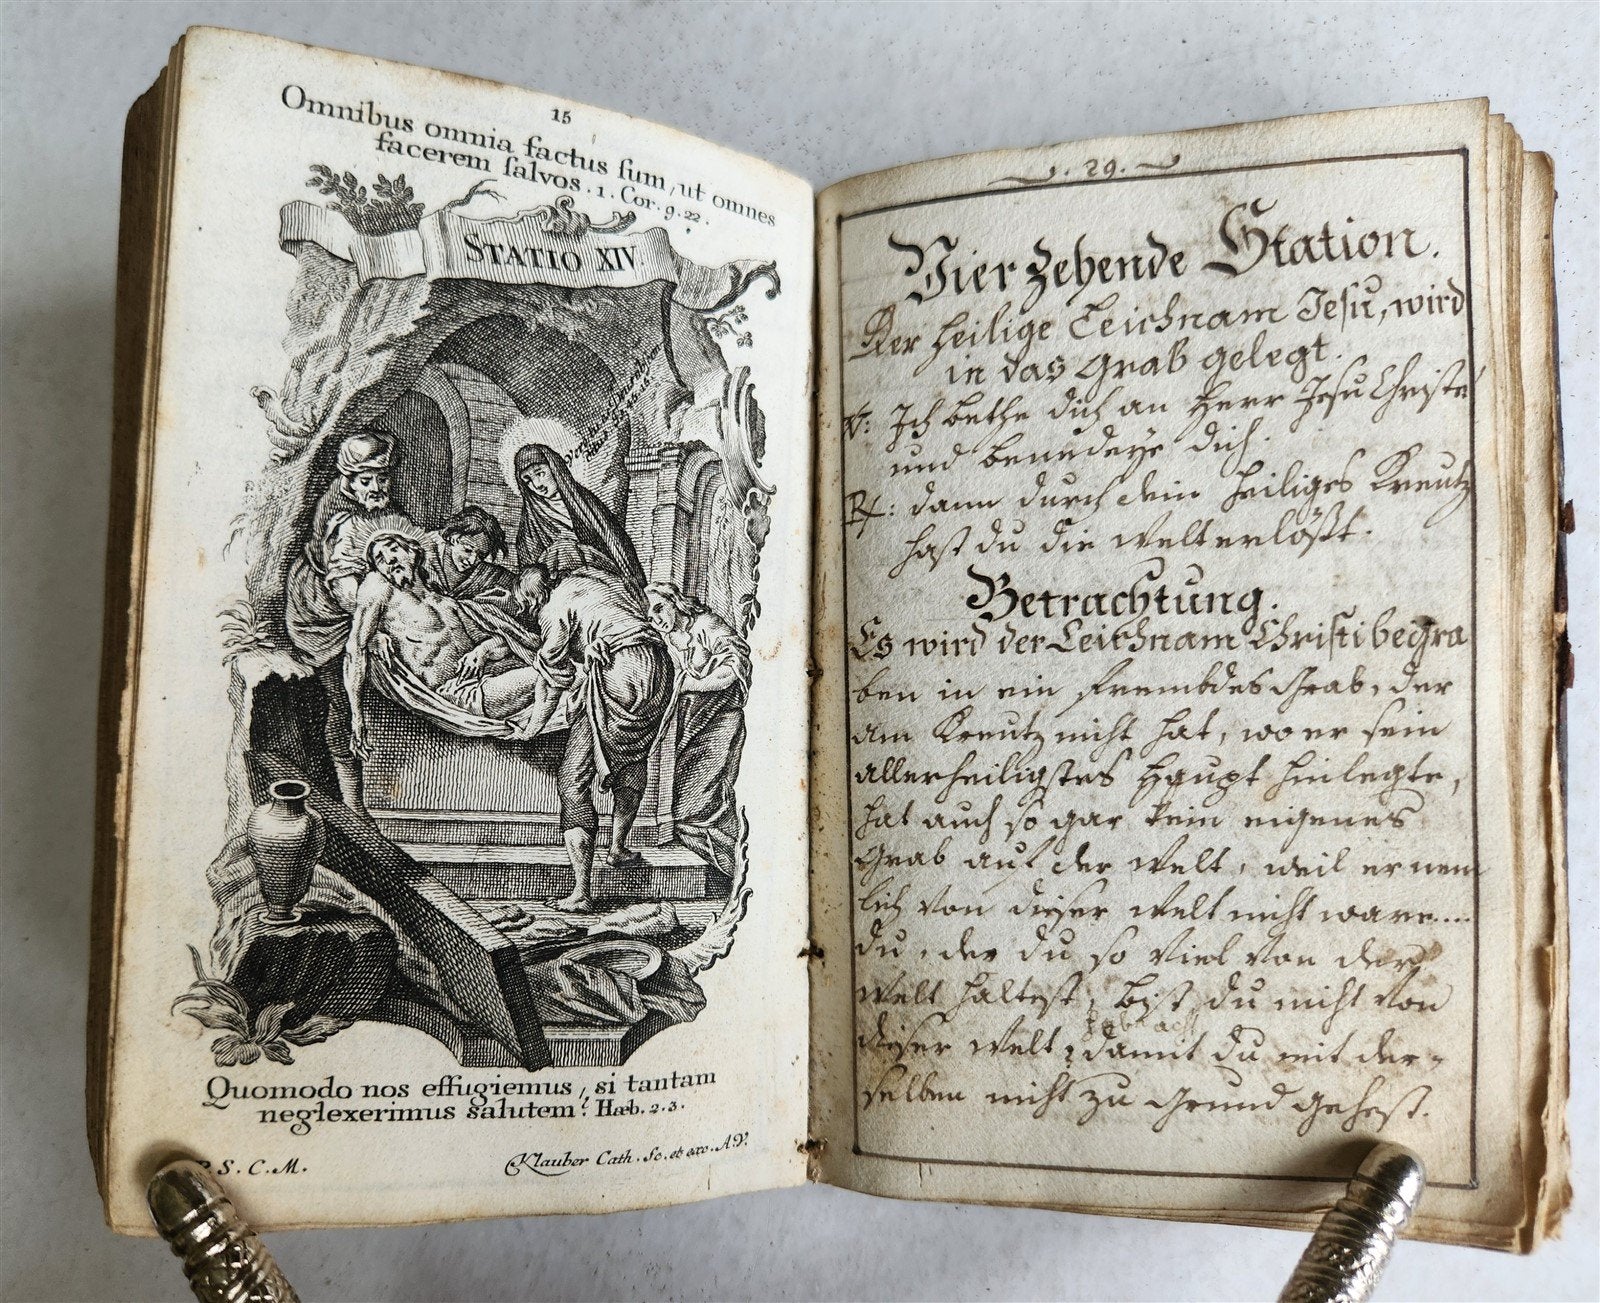 15
Omnibus omnia factus ſum, ut omnes
facerem ſalvos. 1. Cor. 9. 22.
STATIO XIV.
Quomodo nos effugiemus, si tantam
neglexerimus salutem? Hæb. 2. 3.
S. C. M.
Klauber Cath. Sc. et exc. A.V.
. 29.
Vierzehende Station.
Der heilige Leichnam Jesu, wird
in das Grab gelegt.
V: Ich bethe dich an Herr Jesu Christe
und benedeye dich.
R: dann durch dein heiliges Kreutz
hast du die Welt erlößt.
Betrachtung.
Es wird der Leichnam Christi begra
ben in ein frembdes Grab, der
am Kreutz nicht hat, wo er sein
allerheiligstes Haupt hinlegte,
hat auch so gar kein eigenes
Grab auf der Welt, weil er nem
lich von dieser Welt nicht ware....
du, der du so viel von der
Welt haltest, bist du nicht von
dieser Welt? damit du mit der-
selben nicht zu Grund gehest.